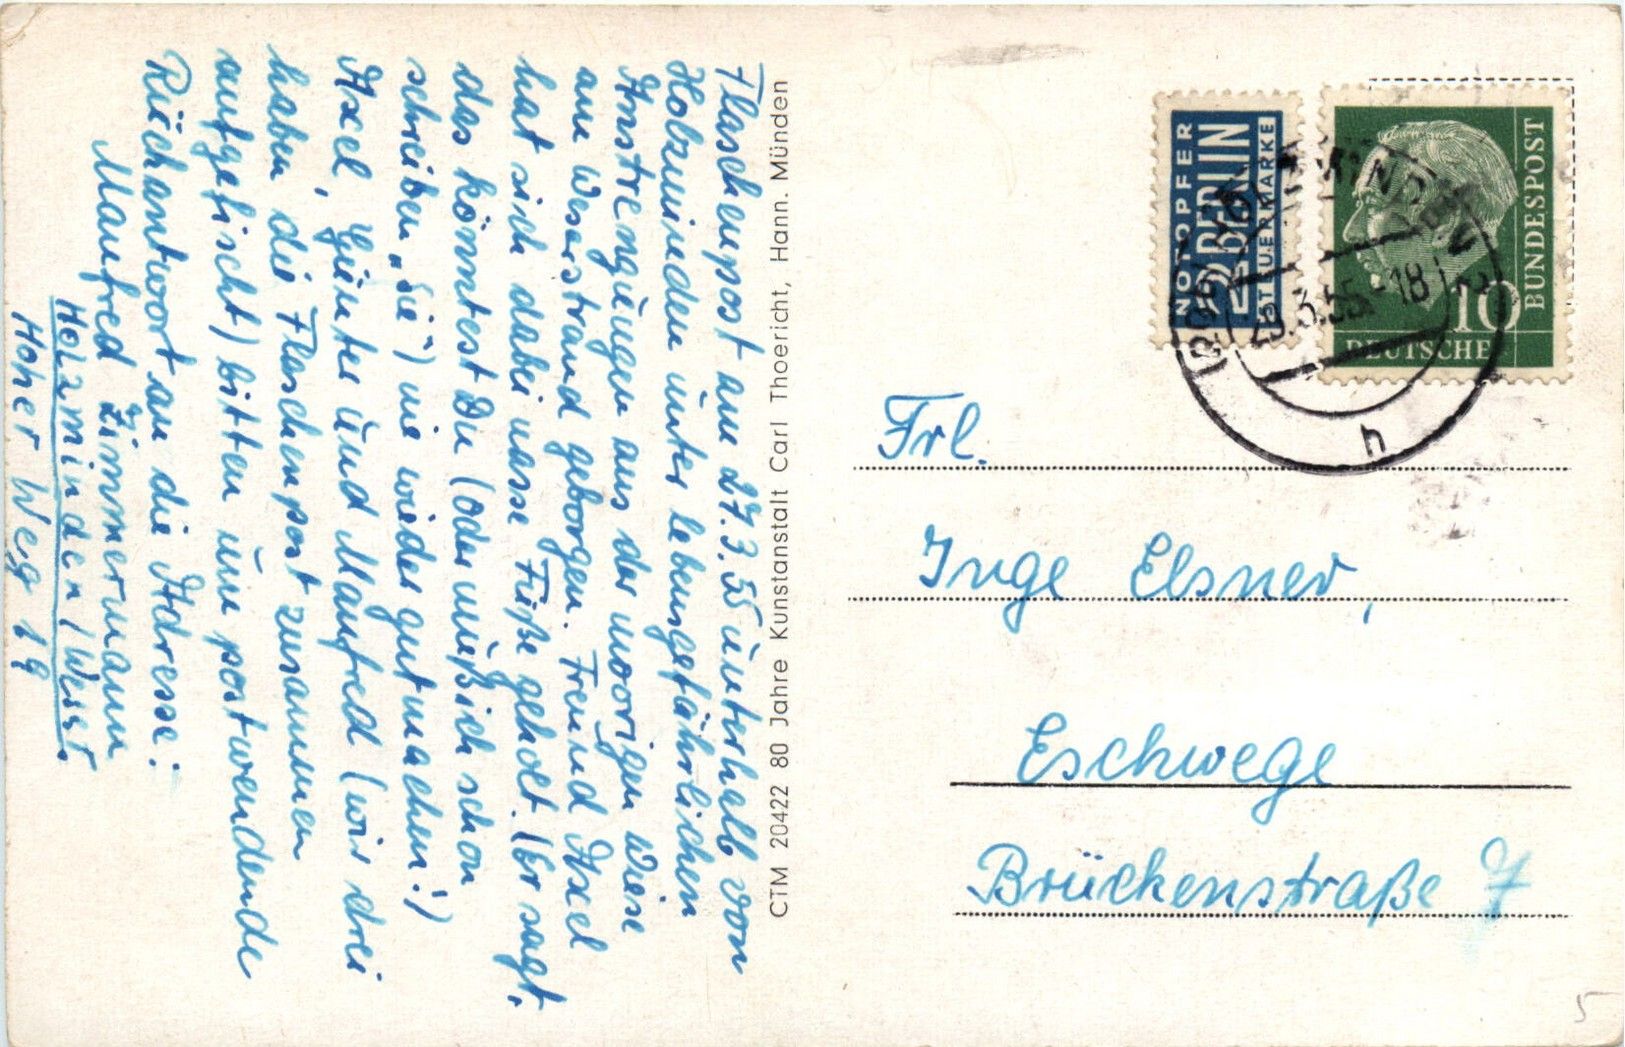 Flaschenpost am 27.3.55 unterhalb von
Holzminden unter lebensgefährlichen
Anstrengungen aus der moorigen Wiese
am Weserstrand geborgen. Freund Axel
hat sich dabei nasse Füße geholt. (Er sagt,
das könntest Du (oder muß ich schon
schreiben „Sie“) nie wieder gutmachen!)
Axel, Günter und Manfred (wir drei
haben die Flaschenpost zusammen
aufgefischt) bitten um postwendende
Rückantwort an die Adresse:
Manfred Zimmermann
Holzminden / Weser.
Hoher Weg 19
CTM 20422 80 Jahre Kunstanstalt Carl Thoericht, Hann. Münden
NOTOPFER
2 BERLIN
STEUERMARKE
10
DEUTSCHE
BUNDESPOST
29.3.55-18
h
Frl.
Inge Elsner,
Eschwege
Brückenstraße 7
5